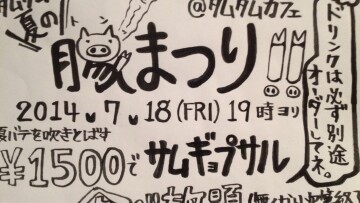 タムタム
夏の
トン
@タムタムカフェ
豚まつり!!
ドリンクは必ず別途
オーダーしてネ。
2014.7.18(FRI)19時ヨリ
夏バテを吹きとばす
¥1500でサムギョプサル